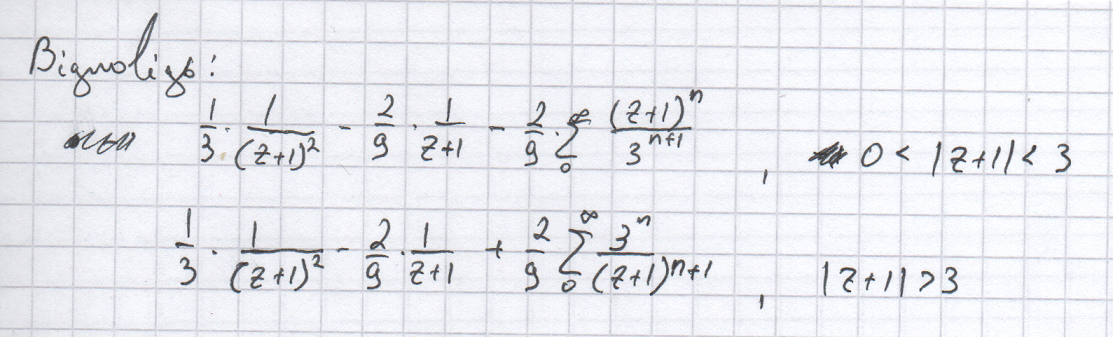 Відповідь:
1/3 · 1/(z+1)² - 2/9 · 1/(z+1) - 2/9 · ∑₀^∞ (z+1)ⁿ/3ⁿ⁺¹ , 0 < |z+1| < 3
1/3 · 1/(z+1)² - 2/9 · 1/(z+1) + 2/9 ∑₀^∞ 3ⁿ/(z+1)ⁿ⁺¹ , |z+1| > 3